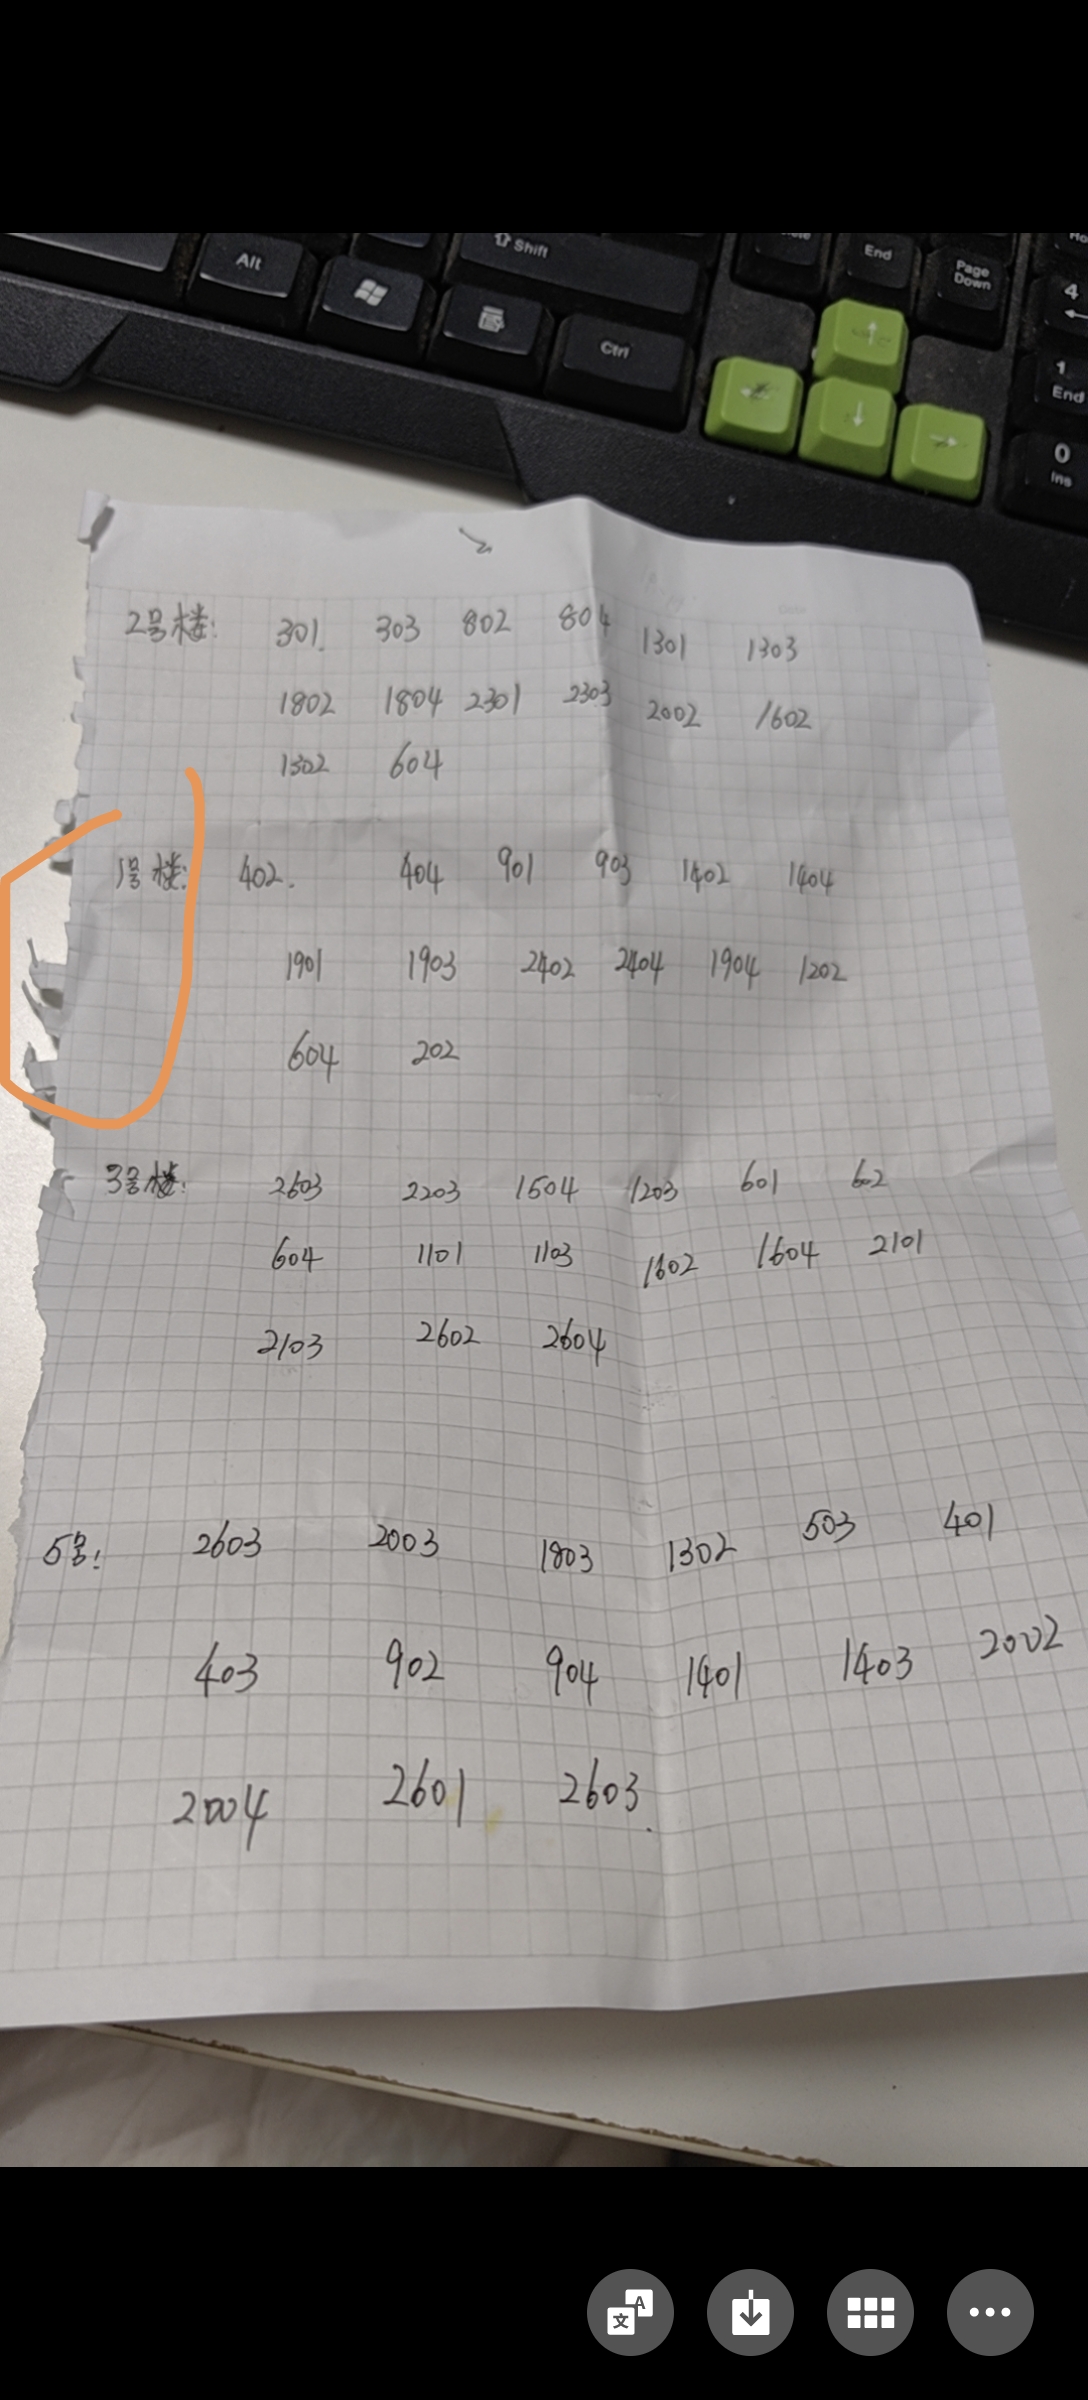 Shift
Alt
Ctrl
End
Page Down
4
1 End
0 Ins
2号楼: 301. 303 802 804 1301 1303
1802 1804 2301 2303 2002 1602
1302 604
1号楼: 402. 404 901 903 1402 1404
1901 1903 2402 2404 1904 1202
604 202
3号楼: 2603 2203 1504 1203 601 602
604 1101 1103 1602 1604 2101
2103 2602 2604
5号: 2603 2003 1803 1302 503 401
403 902 904 1401 1403 2002
2004 2601 2603.